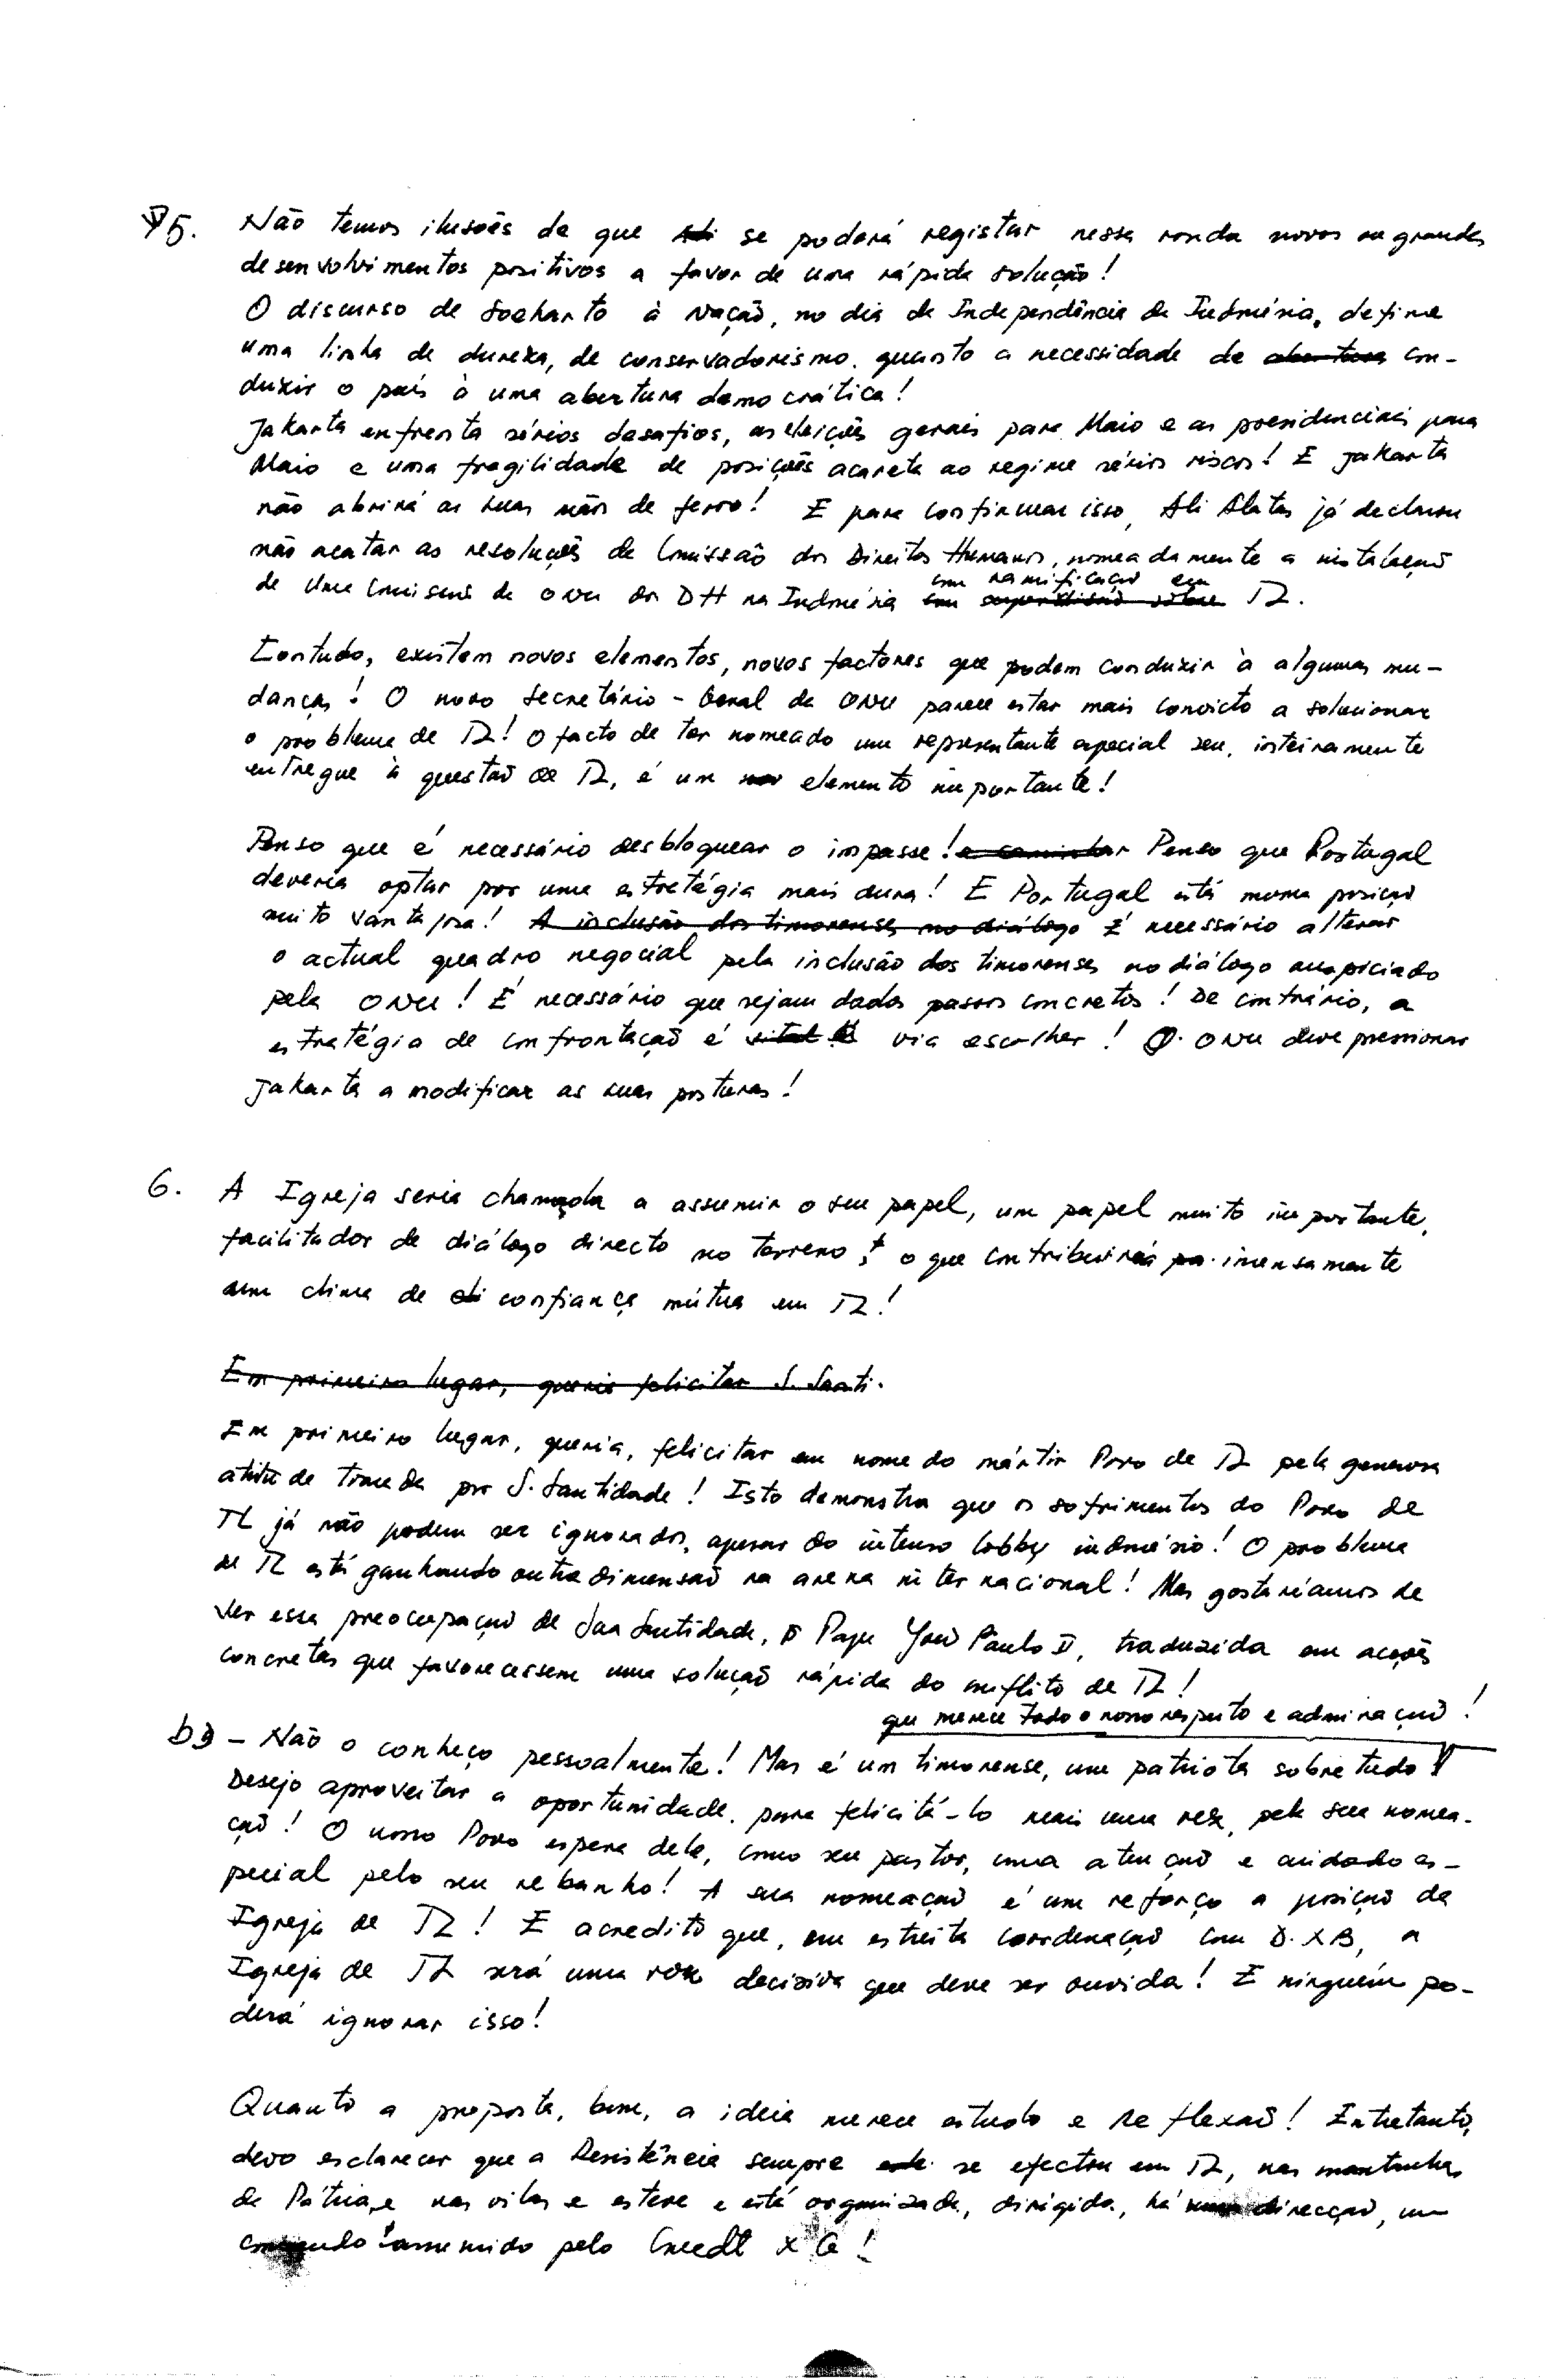 5. Não temos ilusões de que se poderá registar nessa ronda novos ou grandes
desenvolvimentos positivos a favor de uma rápida solução!
O discurso de Soeharto à Nação, no dia da Independência da Indonésia, define
uma linha de dureza, de conservadorismo quanto a necessidade de abertura con-
duzir o país à uma abertura democrática!
Jakarta enfrenta sérios desafios, as eleições gerais para Maio e as presidenciais para
Maio e uma fragilidade de posições acareta ao regime sérios riscos! E Jakarta
não abrirá as suas mãos de ferro! E para confirmar isso, Ali Alatas já declarou
não acatar as resoluções da Comissão dos Direitos Humanos, nomeadamente a instalação
com ramificação em
de uma Comissão da ONU dos DH na Indonésia com sobre TL.
Contudo, existem novos elementos, novos factores que podem conduzir à algumas mu-
danças! O novo Secretário-Geral da ONU parece estar mais convicto a solucionar
o problema de TL! O facto de ter nomeado um representante especial seu, inteiramente
entregue à questão de TL, é um elemento importante!
Penso que é necessário desbloquear o impasse! e caminhar Penso que Portugal
deveria optar por uma estratégia mais dura! E Portugal está numa posição
muito vantajosa! A inclusão dos timorenses no diálogo É necessário alterar
o actual quadro negocial pela inclusão dos timorenses no diálogo auspiciado
pela ONU! É necessário que sejam dados passos concretos! De contrário, a
estratégia de confrontação é via escolher! ONU deve pressionar
Jakarta a modificar as suas posturas!
6. A Igreja seria chamada a assumir o seu papel, um papel muito importante,
facilitador de diálogo directo no terreno, o que contribuirá imensamente
num clima de confiança mútua em TL!
Em primeiro lugar, queria felicitar S. Santi.
Em primeiro lugar, queria, felicitar em nome do mártir Povo de TL pela generosa
atitude tomada por S. Santidade! Isto demonstra que os sofrimentos do Povo de
TL já não podem ser ignorados, apesar do intenso lobby indonésio! O problema
de TL está ganhando outra dimensão na arena internacional! Mas gostaríamos de
ver essa preocupação de Sua Santidade, o Papa João Paulo II, traduzida em acções
concretas que favorecessem uma solução rápida do conflito de TL!
que merece todo o nosso respeito e admiração!
b) - Não o conheço pessoalmente! Mas é um timorense, um patriota sobretudo
Desejo aproveitar a oportunidade para felicitá-lo mais uma vez, pela sua nomea-
ção! O nosso Povo espera dele, como seu pastor, uma atenção e cuidado es-
pecial pelo seu rebanho! A sua nomeação é um reforço a posição da
Igreja de TL! E acredito que, em estreita coordenação com D. XB, a
Igreja de TL será uma voz decisiva que deve ser ouvida! E ninguém po-
derá ignorar isso!
Quanto a proposta, bem, a ideia merece estudo e reflexão! Entretanto,
devo esclarecer que a Resistência sempre se efectou em TL, nas montanhas
da Pátria e nas vilas e esteve e está organizada, dirigida, há direcção, um
comando assumido pelo XG!